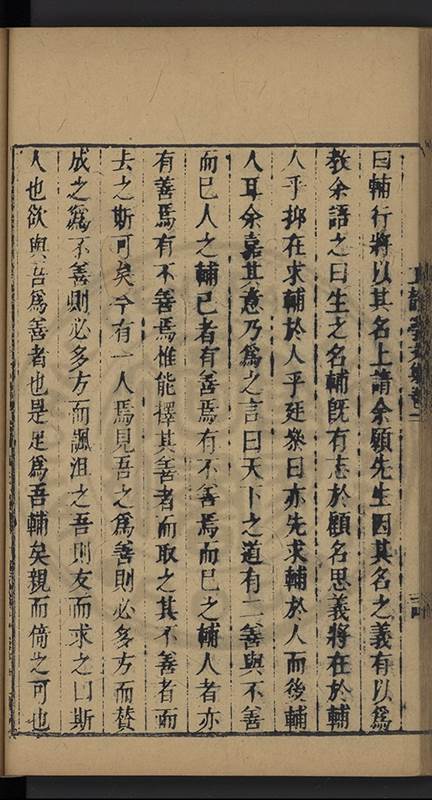 曰輔行將以其名上請余願先生因其名之義有以爲
教余語之曰生之名輔旣有志於顧名思義將在於輔
人乎抑在求輔於人乎廷粲曰亦先求輔於人而後輔
人耳余嘉其意乃爲之言曰天下之道有二善與不善
而已人之輔己者有善焉有不善焉而己之輔人者亦
有善焉有不善焉惟能擇其善者而取之其不善者而
去之斯可矣今有一人焉見吾之爲善則必多方而贊
成之爲不善則必多方而諷沮之吾則友而求之曰斯
人也欲與吾爲善者也是足爲吾輔矣親而倚之可也